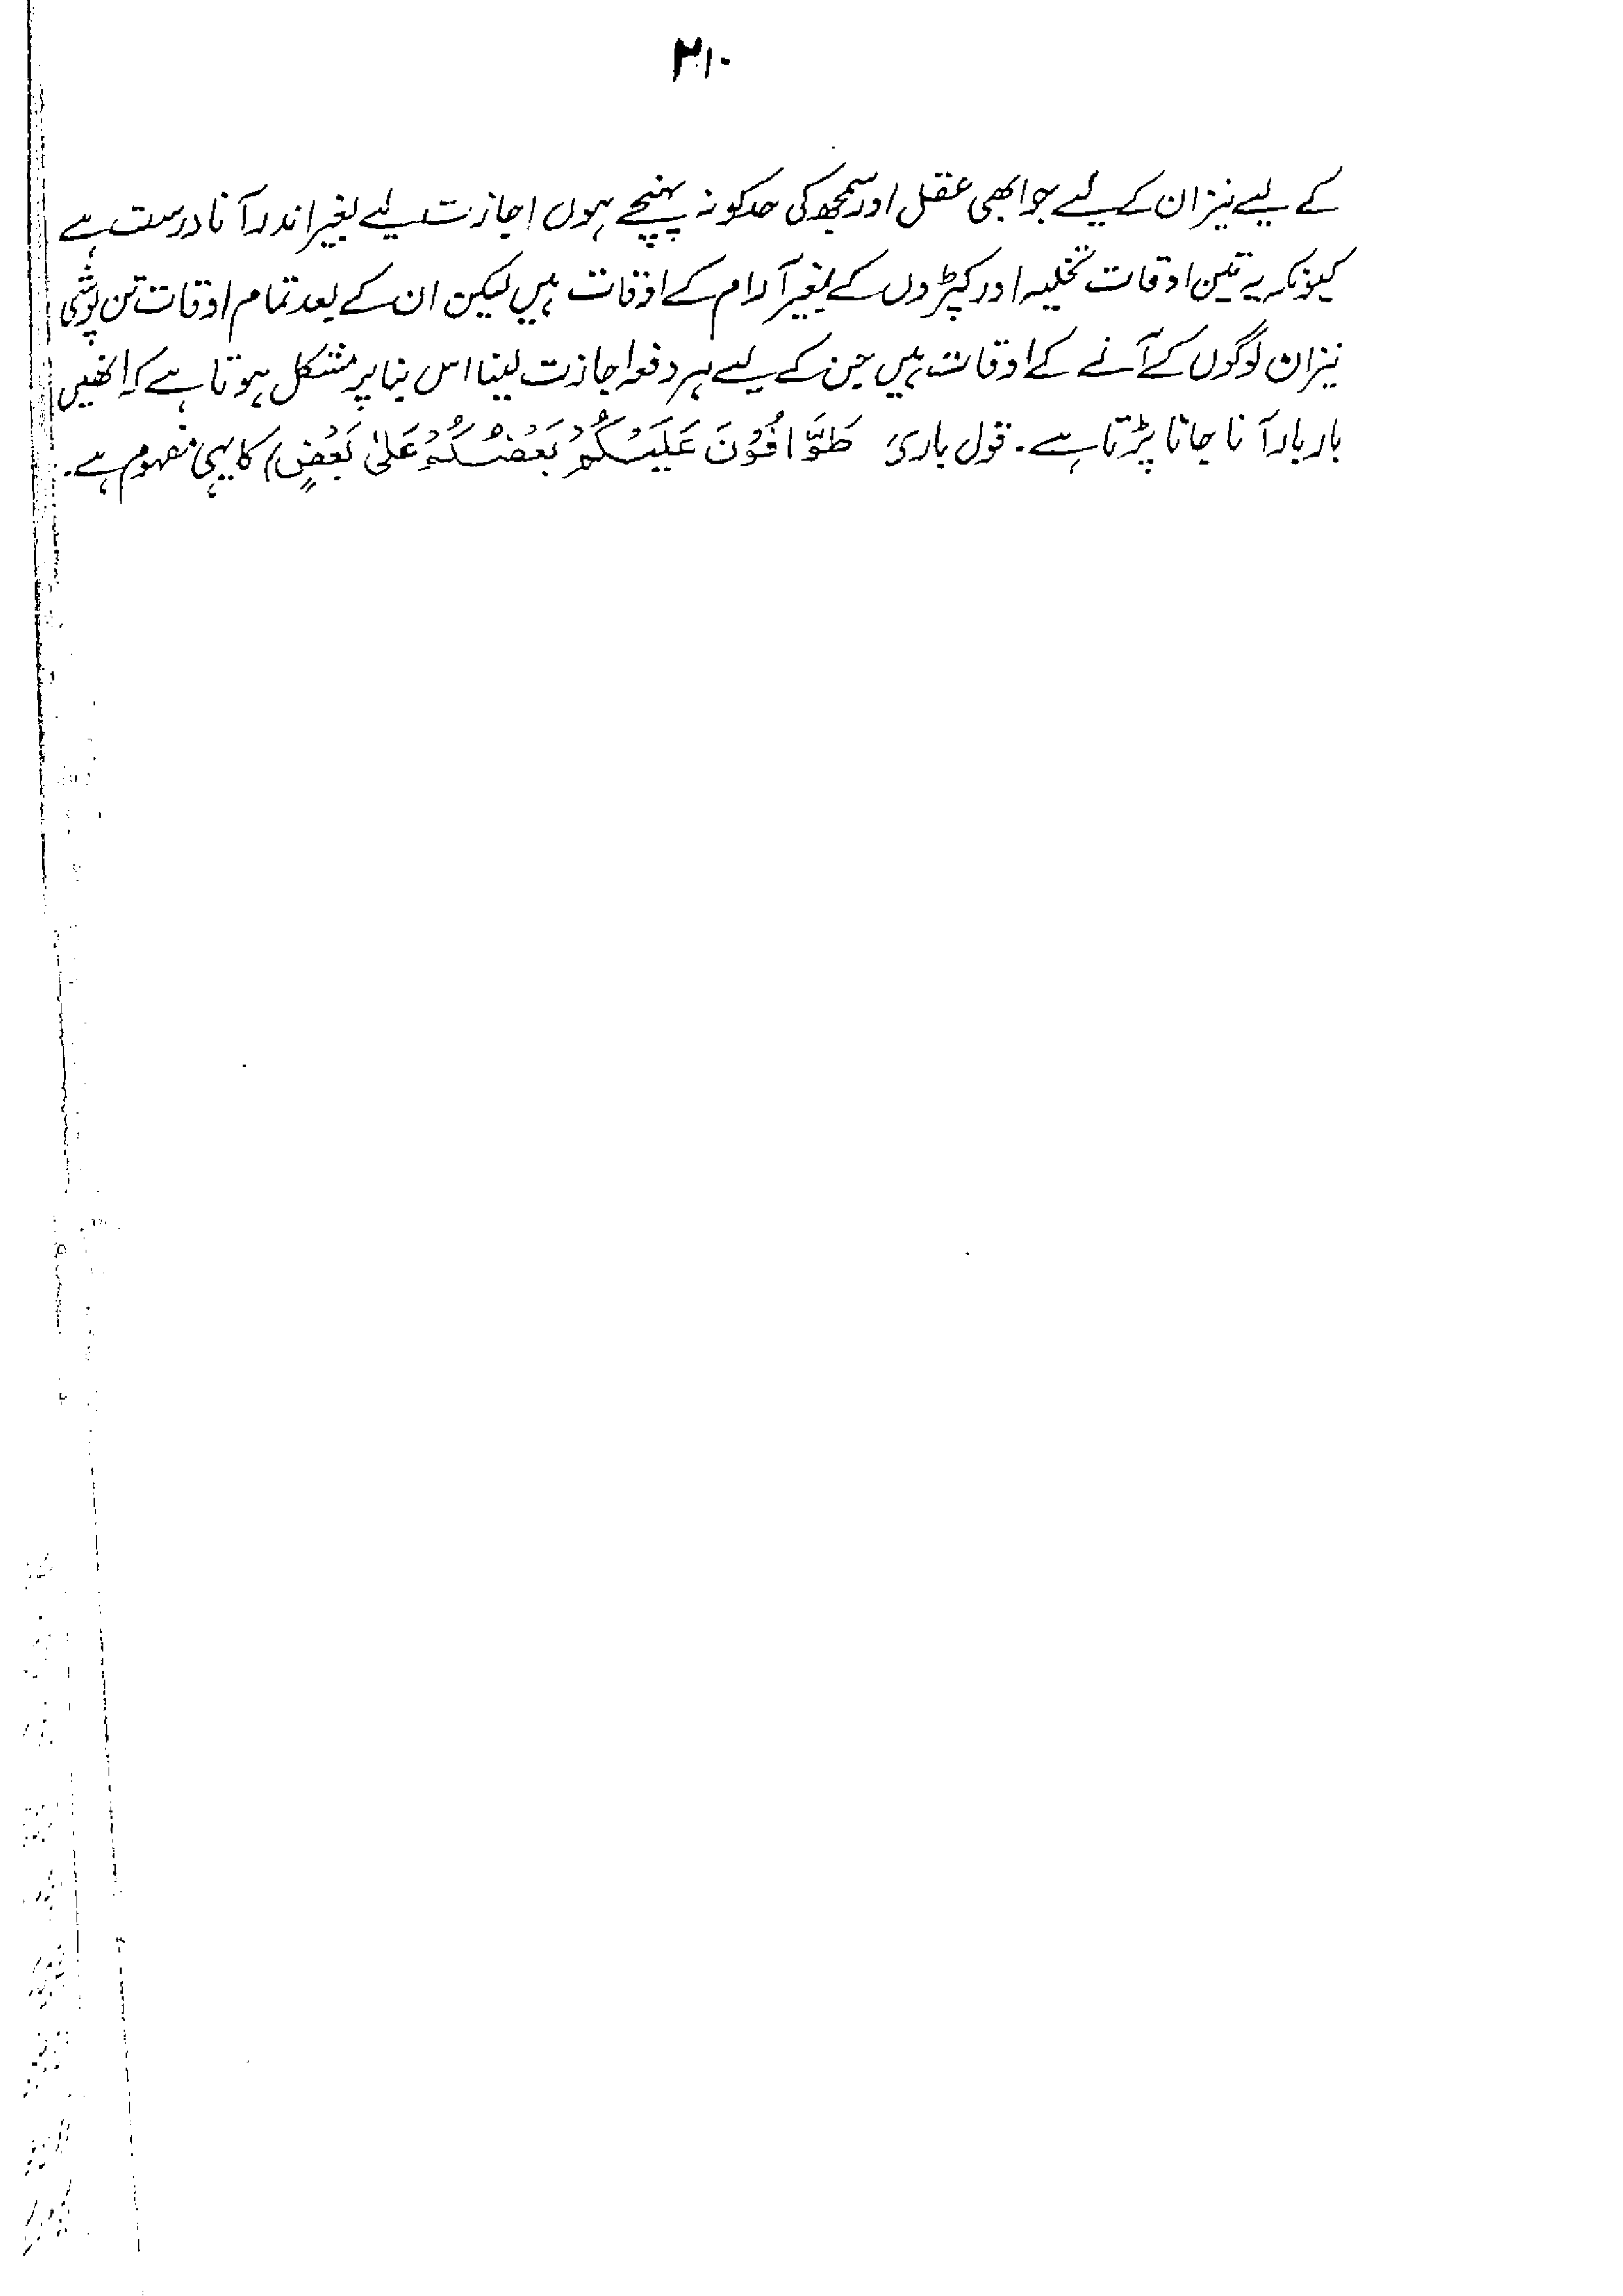 ۲۱۰
کے لیے نیز ان کے لیے جو ابھی عقل اور سمجھ کی حد کو نہ پہنچے ہوں اجازت لیے بغیر اندر آنا درست ہے
کیونکہ یہ تین اوقات تخلیہ اور کپڑوں کے بغیر آرام کے اوقات ہیں لیکن ان کے بعد تمام اوقات تن پوشی
نیز ان لوگوں کے آنے کے اوقات ہیں جن کے لیے ہر دفعہ اجازت لینا اس بنا پر مشکل ہوتا ہے کہ انھیں
بار بار آنا جانا پڑتا ہے۔ قول باری طَوَّافُوْنَ عَلَيْكُمْ بَعْضُكُمْ عَلٰى بَعْضٍ) کا یہی مفہوم ہے۔